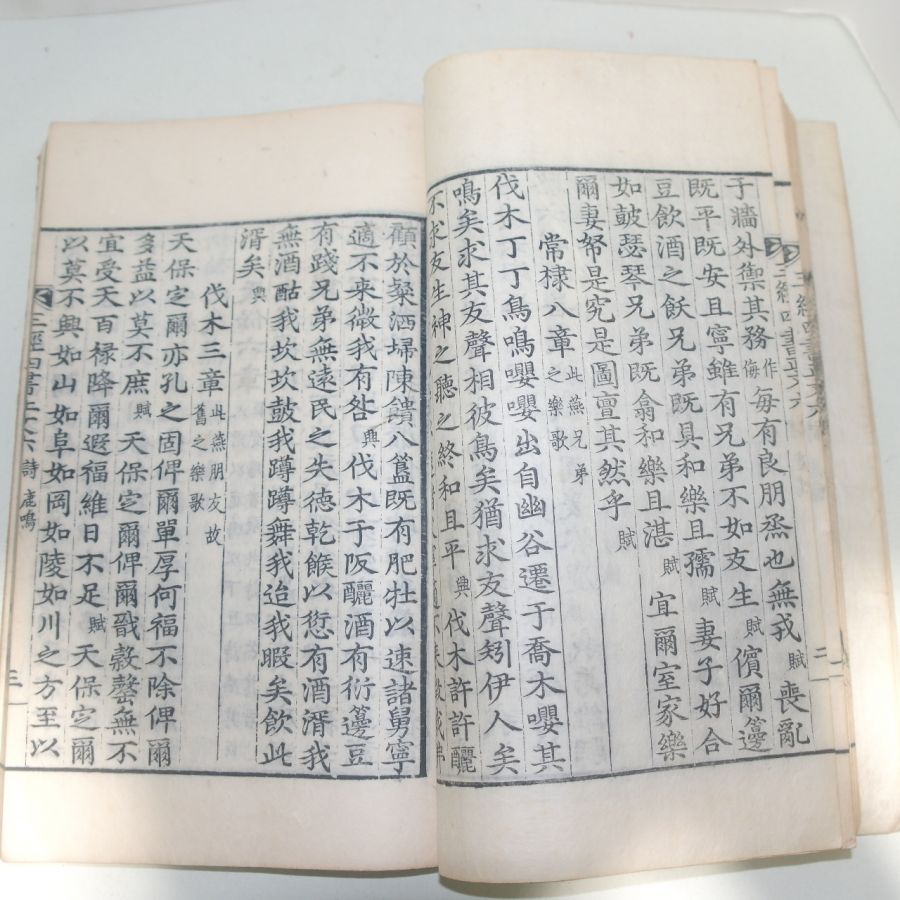 于牆外禦其務作侮每有良朋烝也無戎賦喪亂
既平既安且寧雖有兄弟不如友生賦儐爾籩
豆飲酒之飫兄弟既具和樂且孺賦妻子好合
如鼓瑟琴兄弟既翕和樂且湛賦宜爾室家樂
爾妻帑是究是圖亶其然乎賦
常棣八章此燕兄弟之樂歌
伐木丁丁鳥鳴嚶嚶出自幽谷遷于喬木嚶其
鳴矣求其友聲相彼鳥矣猶求友聲矧伊人矣
不求友生神之聽之終和且平興伐木許許釃
顧於粲洒埽陳饋八簋既有肥牡以速諸舅寧
適不來微我有咎興伐木于阪釃酒有衍籩豆
有踐兄弟無遠民之失德乾餱以愆有酒湑我
無酒酤我坎坎鼓我蹲蹲舞我迨我暇矣飲此
湑矣興
伐木三章此燕朋友故舊之樂歌
天保定爾亦孔之固俾爾單厚何福不除俾爾
多益以莫不庶賦天保定爾俾爾戩穀罄無不
宜受天百祿降爾遐福維日不足賦天保定爾
以莫不興如山如阜如岡如陵如川之方至以
三經四書正文六 詩 鹿鳴 三